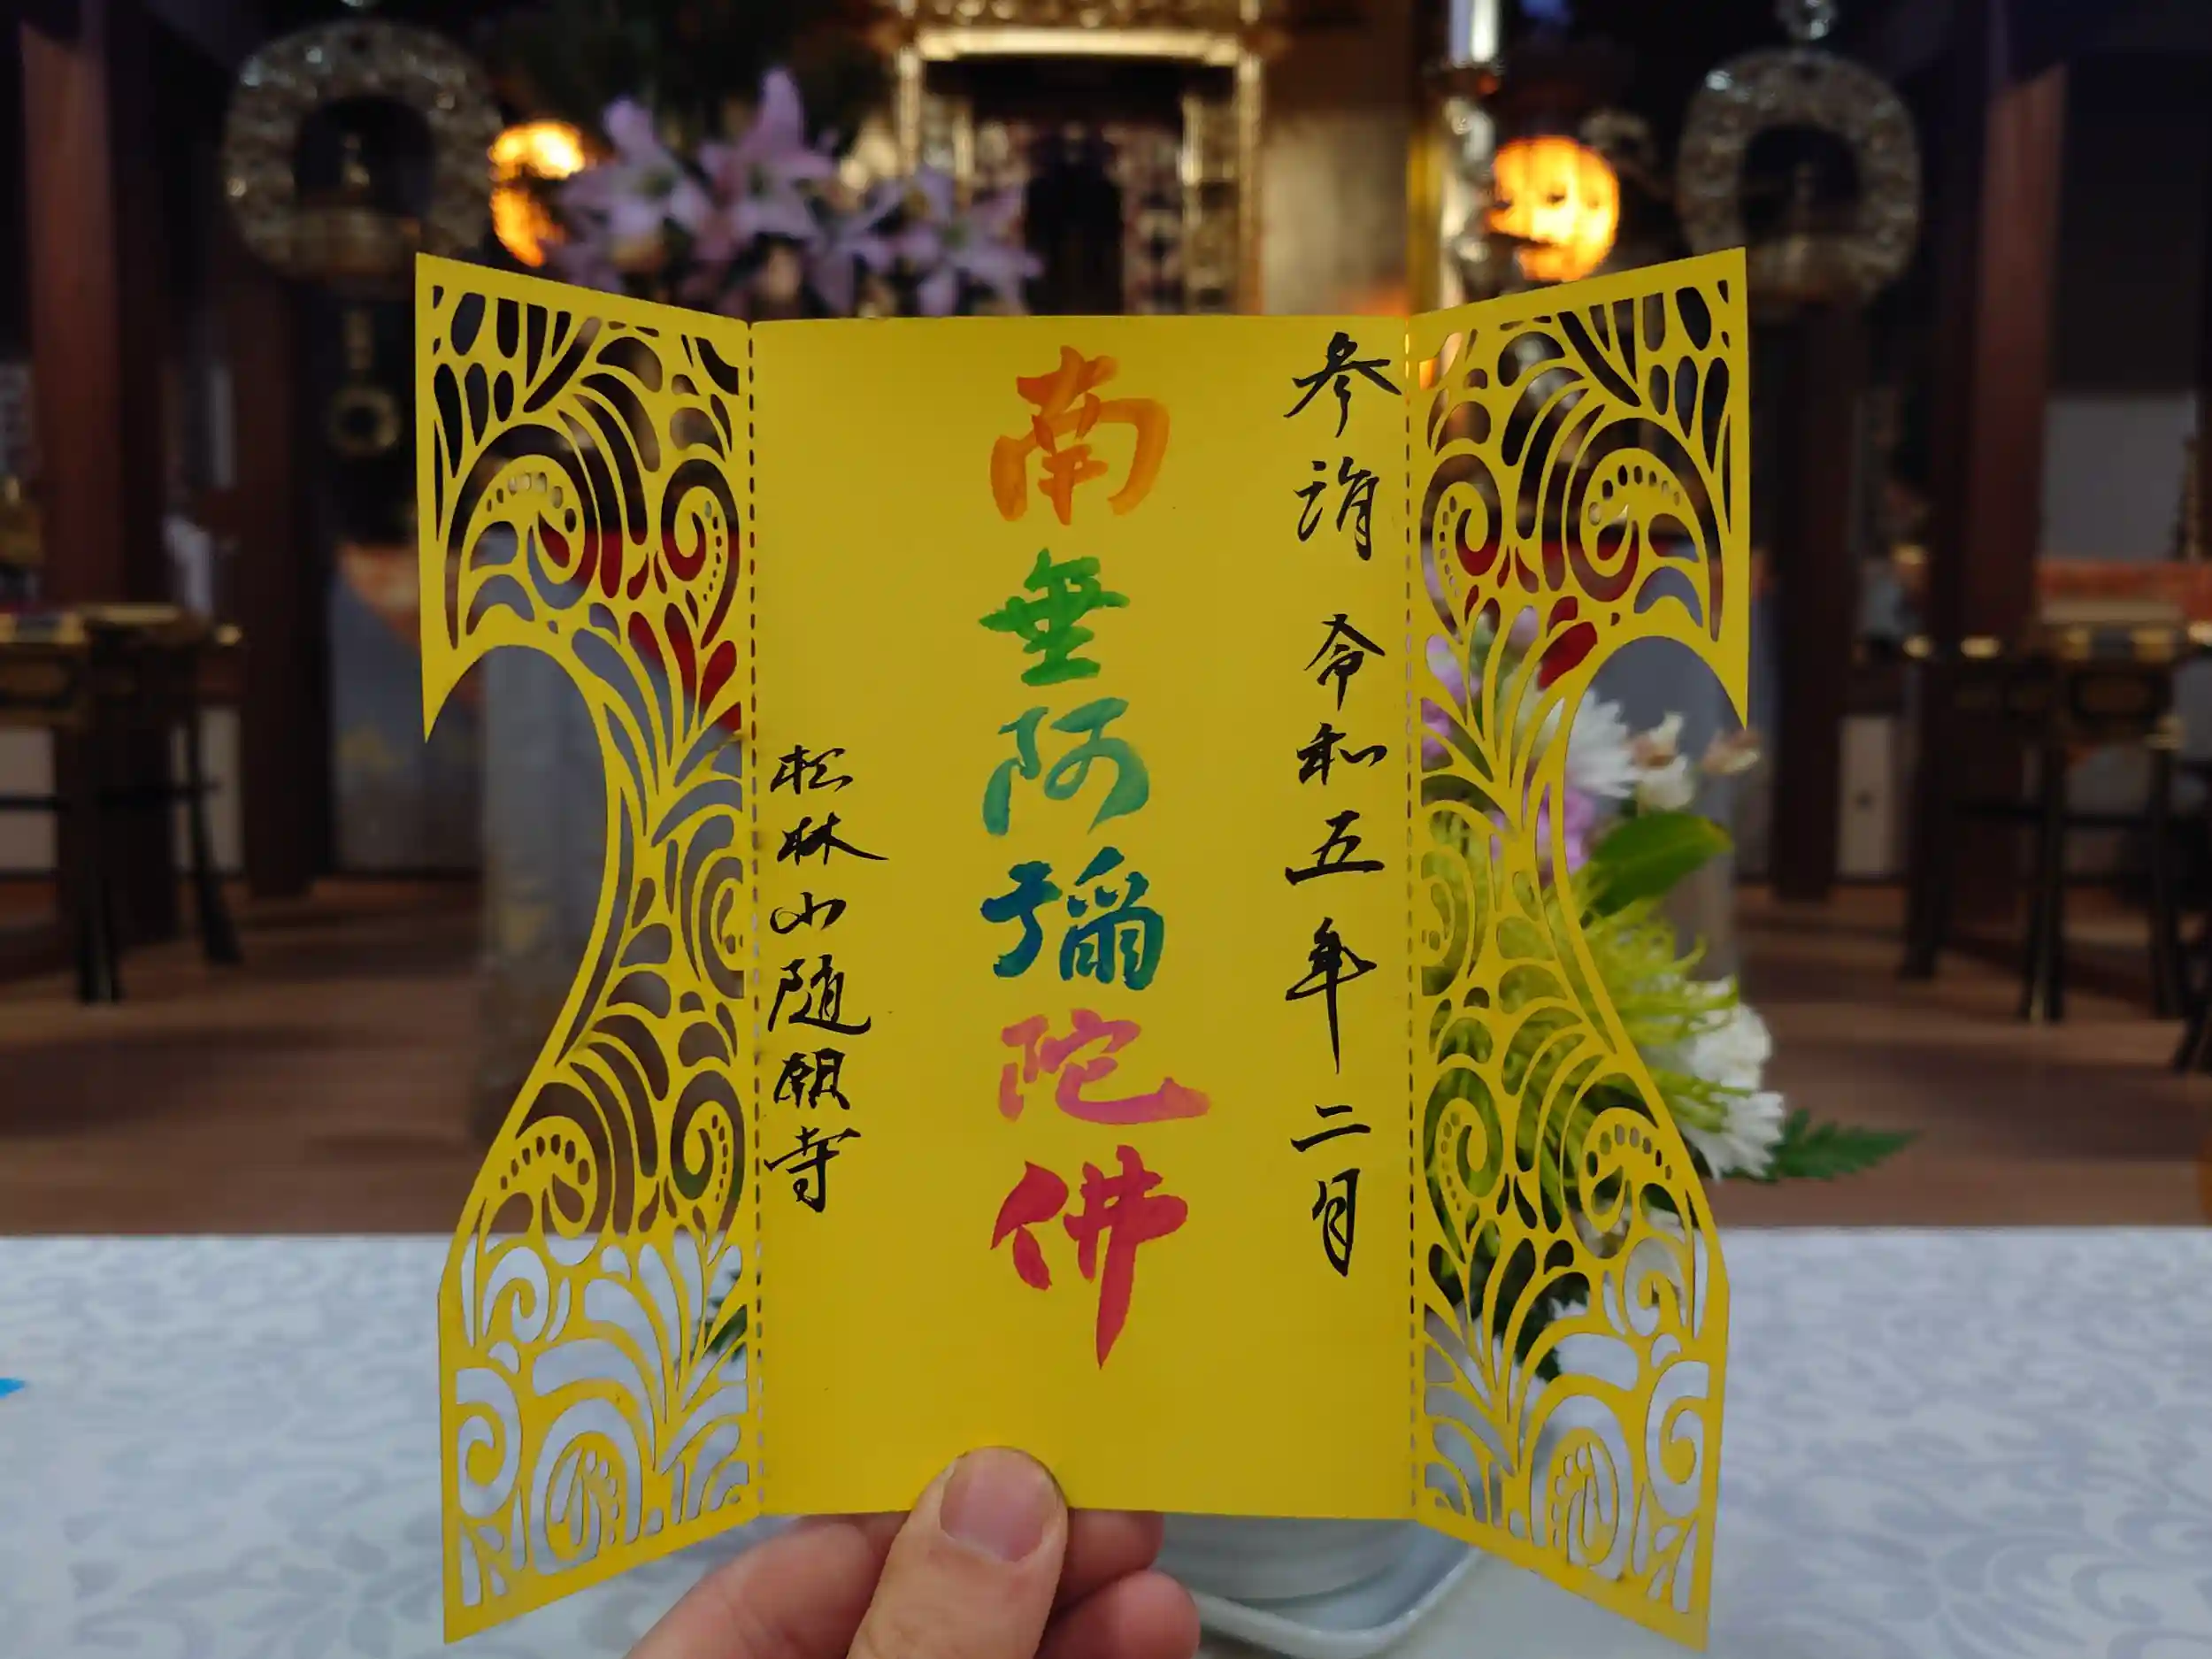 参詣 令和五年二月
南無阿彌陀佛
松林山随願寺